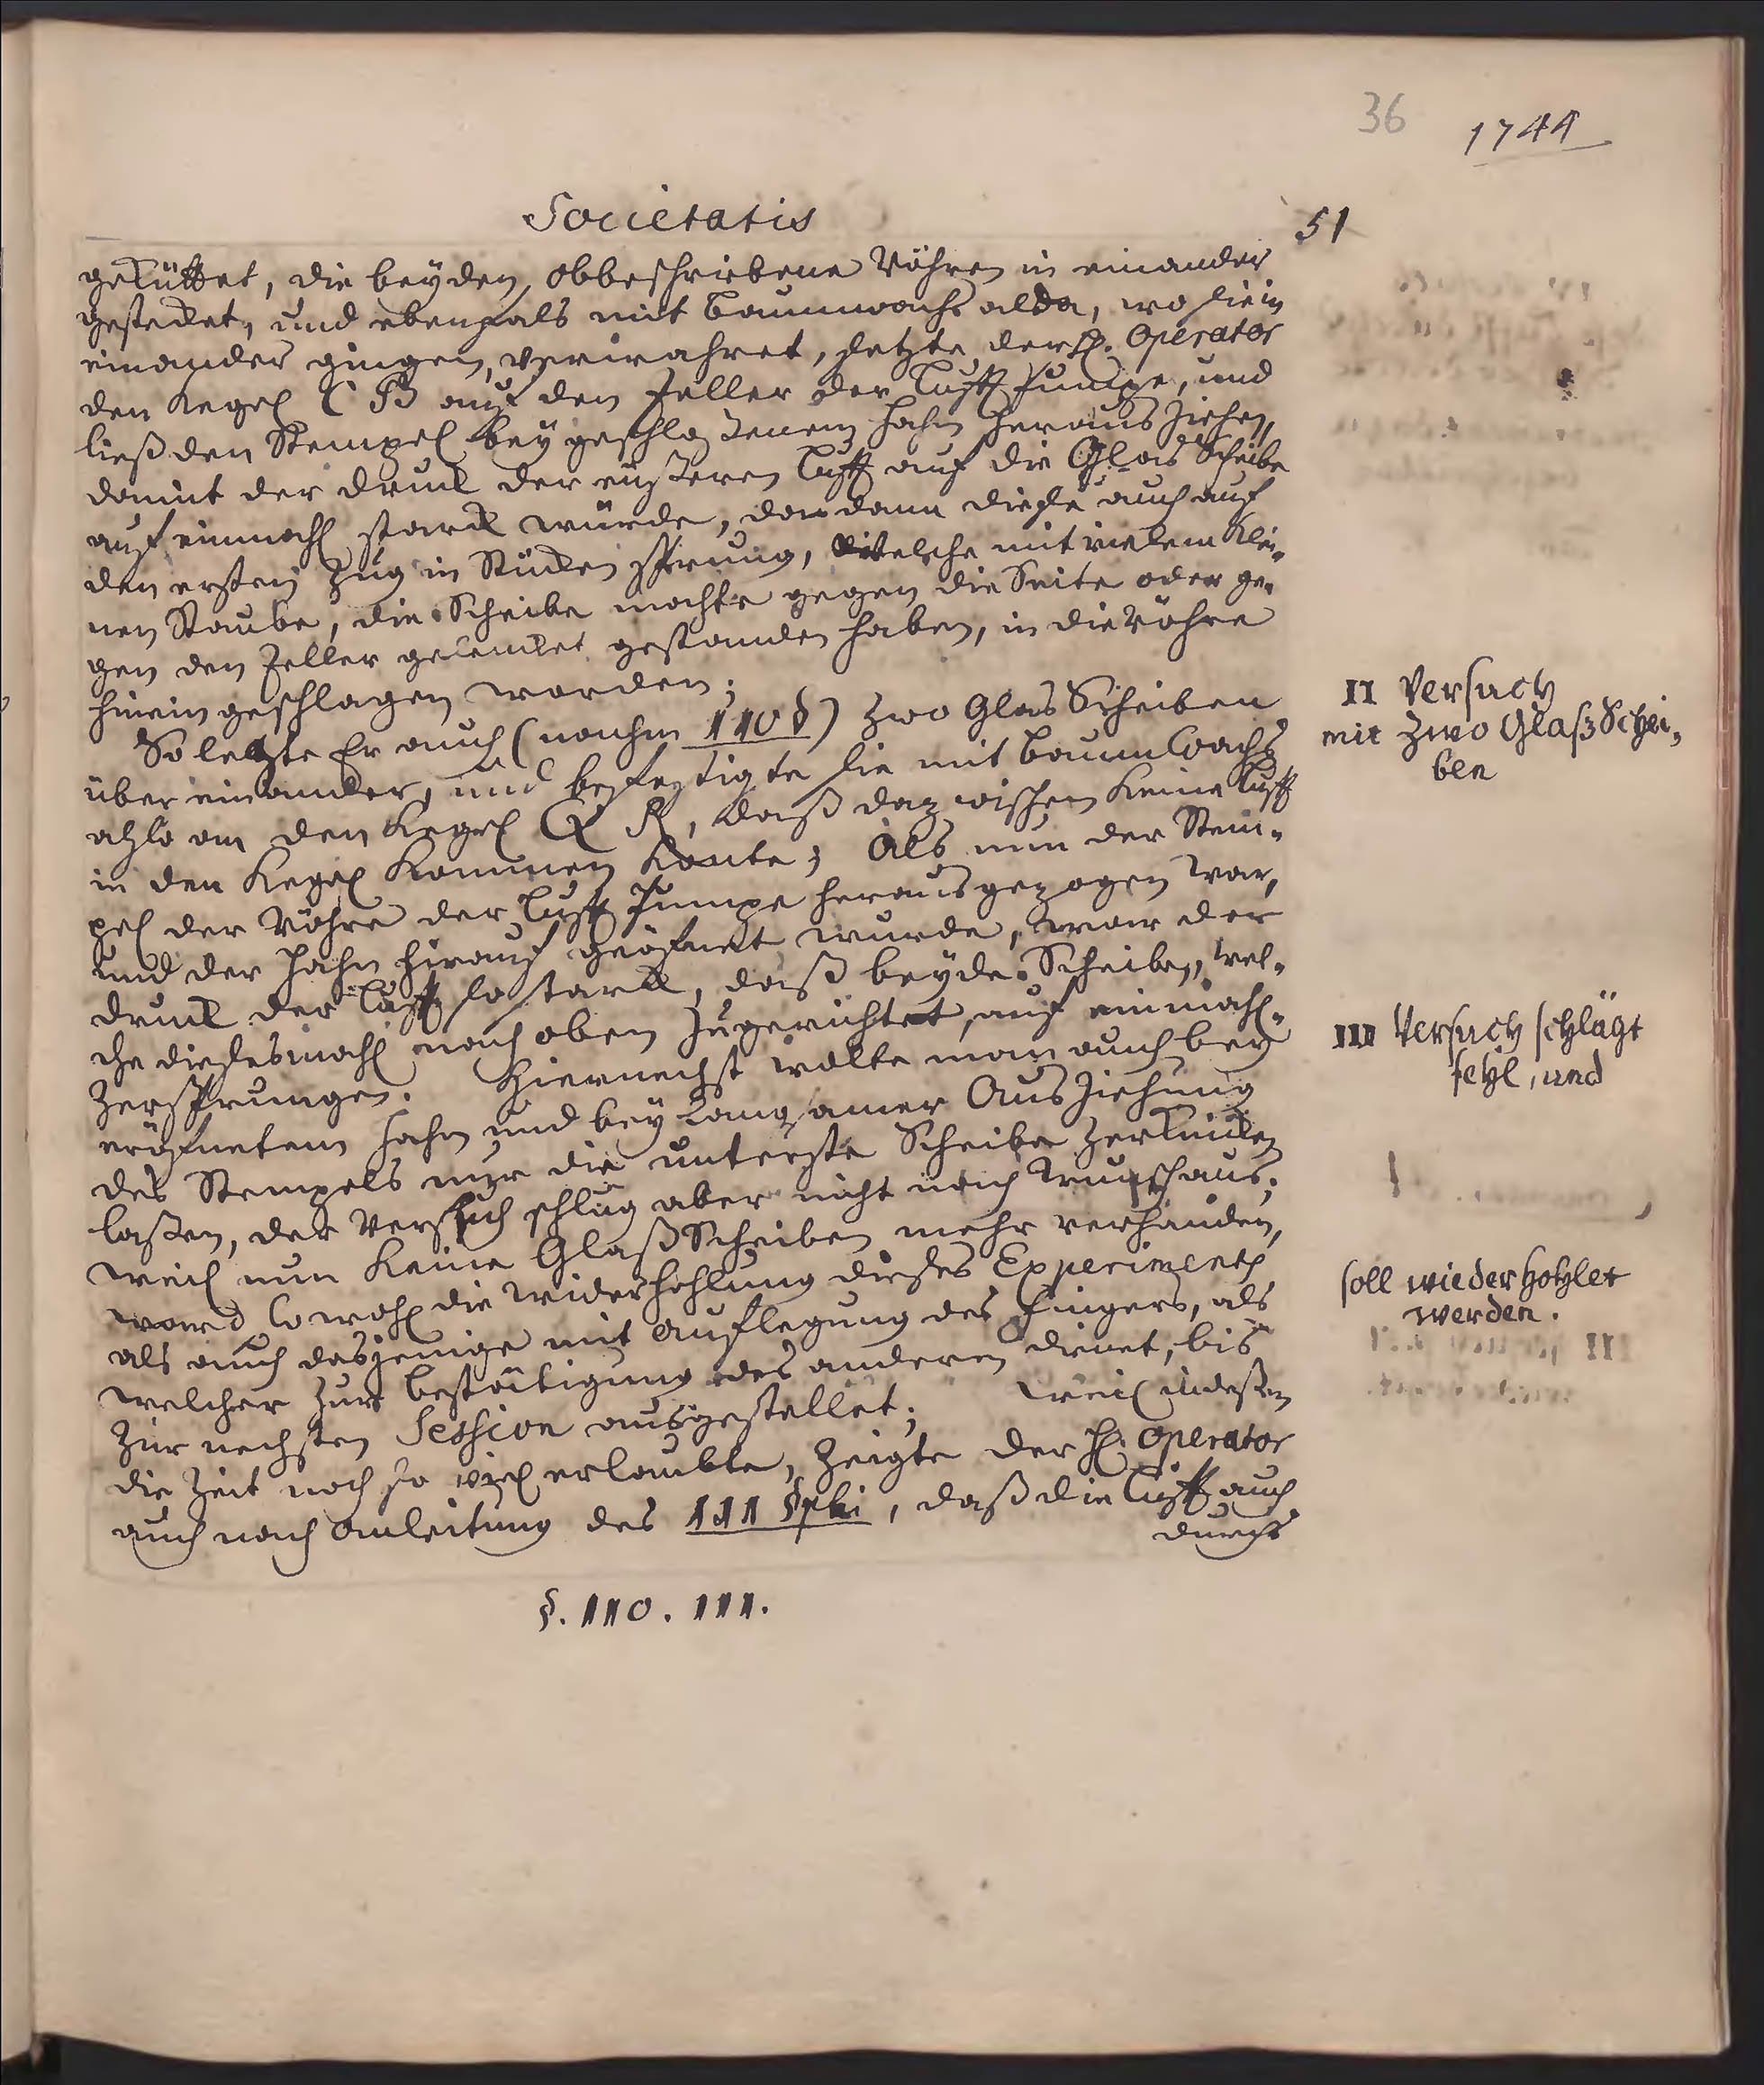 36
1744
Societatis
51
geküttet, die beyden, obbeschriebene Röhren in einander
gestecket, und ebenfals mit Baumwachs alda, wo sie in
einander gingen, verwahret, setzte der H. Operator
den Kegel C B auf den Teller der Lufft Pumpe, und
ließ den Stempel bey geschloßenem Hahn heraus ziehen,
damit der Druck der eüßeren Lufft auf die Glas Scheibe
auf einmahl starck würde, da dann dieße auch auf
den ersten Zug in Stücken sprung, welche mit vielem klei-
nen Staube, die Scheibe mochte gegen die Seite oder ge-
gen den Teller gelencket gestanden haben, in die Röhre
hinein geschlagen worden;
So setzte Er auch (nach 110 §) zwo Glas Scheiben
über einander, und befestigte sie mit Baum Wachs
also an den Kegel Q R, daß dazwischen keine Lufft
in den Kegel kommen konte; Als nun der Stem-
pel der Röhre der Lufft Pumpe herausgezogen war,
und der Hahn hierauf geöfnet wurde, war der
Druck der Lufft so starck, daß beyde Scheiben, wel-
che dießesmahl nach oben zugerichtet, auf einmahl
zersprungen. Hiernechst wolte man auch bey
eröfnetem Hahn und bey langsamer Aus Ziehung
des Stempels nur die unterste Scheibe zerknicken
laßen, der Versuch schlug aber nicht nach Wunsch aus;
weil nun keine Glaß Scheiben mehr verhanden,
ward so wohl die Widerhohlung dießes Experiments,
als auch dasjenige mit Auflegung des Fingers, als
welcher zur Bestätigung des anderen dienet, bis
zur nechsten Session ausgestellet; weil indeßen
die Zeit noch so viel erlaubte, zeigte der H. Operator
auch nach Anleitung des 111 §phi, daß die Lufft auch
durchs
§. 110. 111.
II Versuch
mit zwo Glaß Schei-
ben
III Versuch schlägt
fehl, und
soll wiederhohlet
werden.